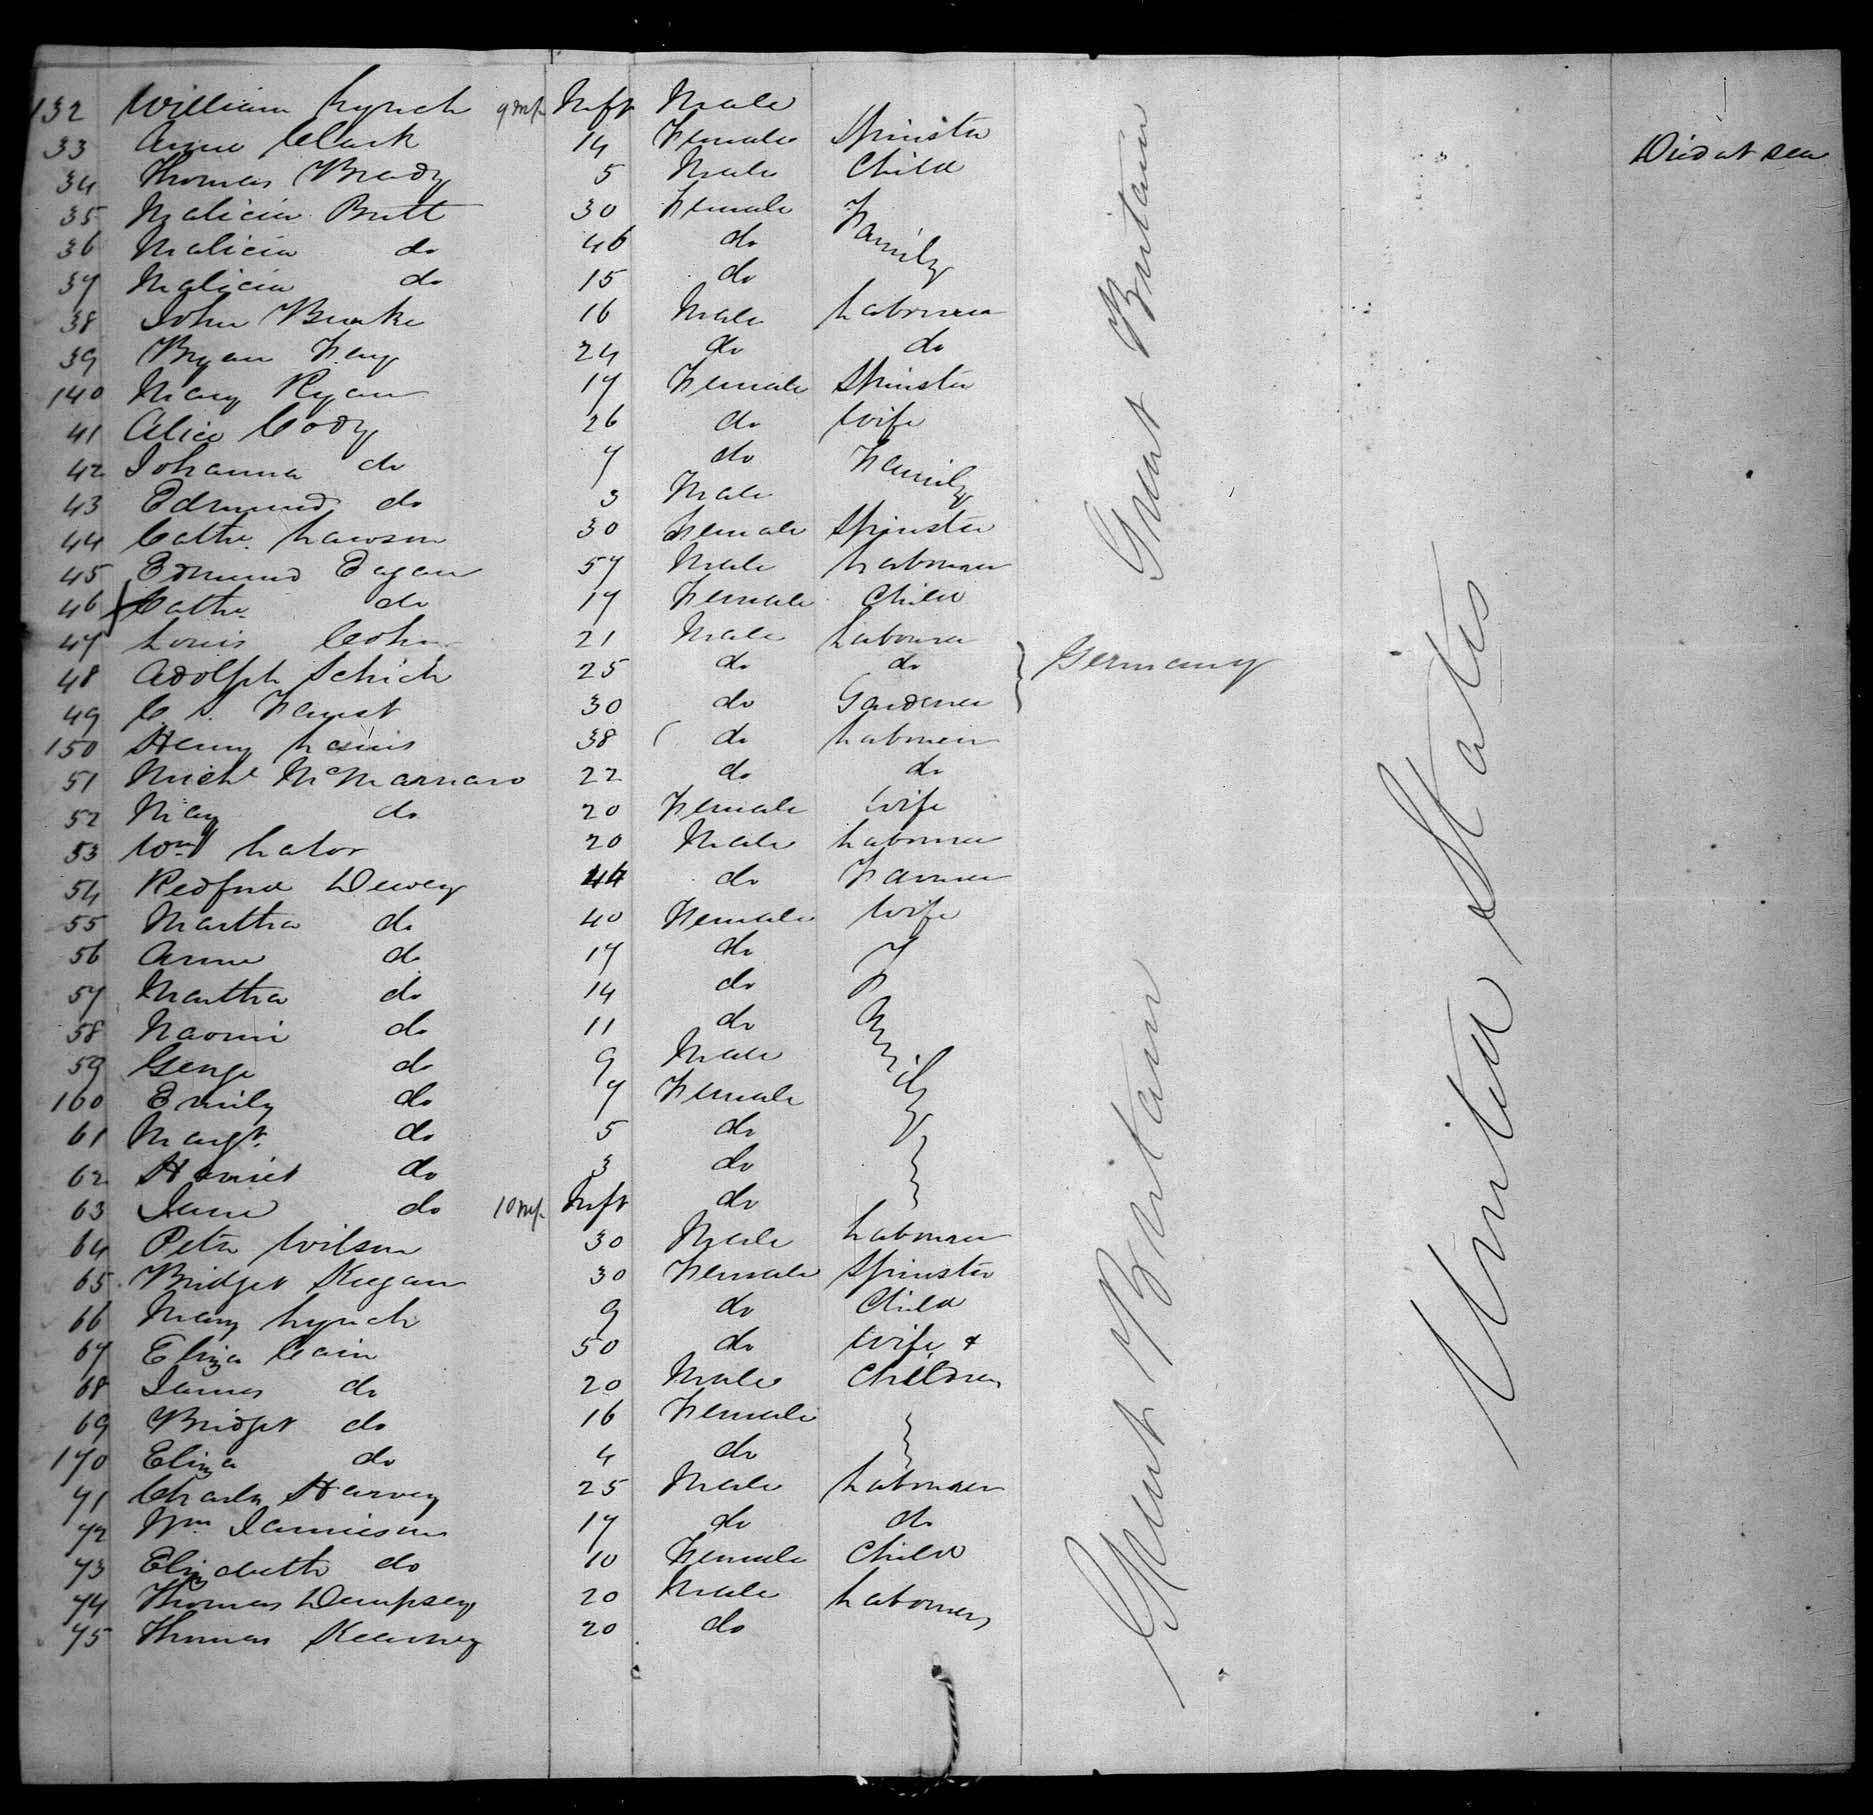 132 William Lynch 9 Ms Inft Male
33 Anne Clark 14 Female Spinster
34 Thomas Brady 5 Male Child Died at sea
35 Malicia Butt 30 Female Family
36 Malicia do 46 do
37 Malicia do 15 do
38 John Burke 16 Male Labourer
39 Bryan Fay 24 do do
140 Mary Ryan 17 Female Spinster
41 Alice Cody 26 do Wife
42 Johanna do 7 do Family
43 Edmund do 3 Male
44 Cathe. Lawson 30 Female Spinster
45 Edmund Eagan 57 Male Labourer
46 Cathe. do 17 Female Child
47 Louis Cohn 21 Male Labourer
48 Adolph Schick 25 do do Germany
49 C. S. Faust 30 do Gardener
150 Henry 38 do Labourer
51 Michl 22 do do
52 May do 20 Female Wife
53 Wm Lalor 20 Male Labourer
54 Dewey 44 do Farmer
55 Martha do 40 Female Wife
56 Anne do 17 do Family
57 Martha do 14 do
58 Naomi do 11 do
59 George do 9 Male
160 Emily do 7 Female
61 Margt. do 5 do
62 Harriet do 3 do
63 Jane do 10 Ms Inft do
64 Peter Wilson 30 Male Labourer
65 Bridget Keegan 30 Female Spinster
66 Mary Lynch 9 do Child
67 Eliza Cain 50 do Wife &
68 James do 20 Male Children
69 Bridget do 16 Female
170 Eliza do 4 do
71 Charles Harvey 25 Male Labourer
72 Wm. Jamieson 17 do do
73 Elizabeth do 10 Female Child
74 Thomas Dempsey 20 Male Labourers
75 Thomas Kearney 20 do
Great Britain
Great Britain
United States